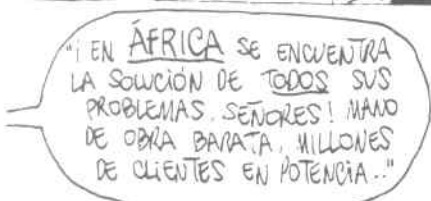 "¡ EN ÁFRICA SE ENCUENTRA
LA SOLUCIÓN DE TODOS SUS
PROBLEMAS, SEÑORES! MANO
DE OBRA BARATA, MILLONES
DE CLIENTES EN POTENCIA.."